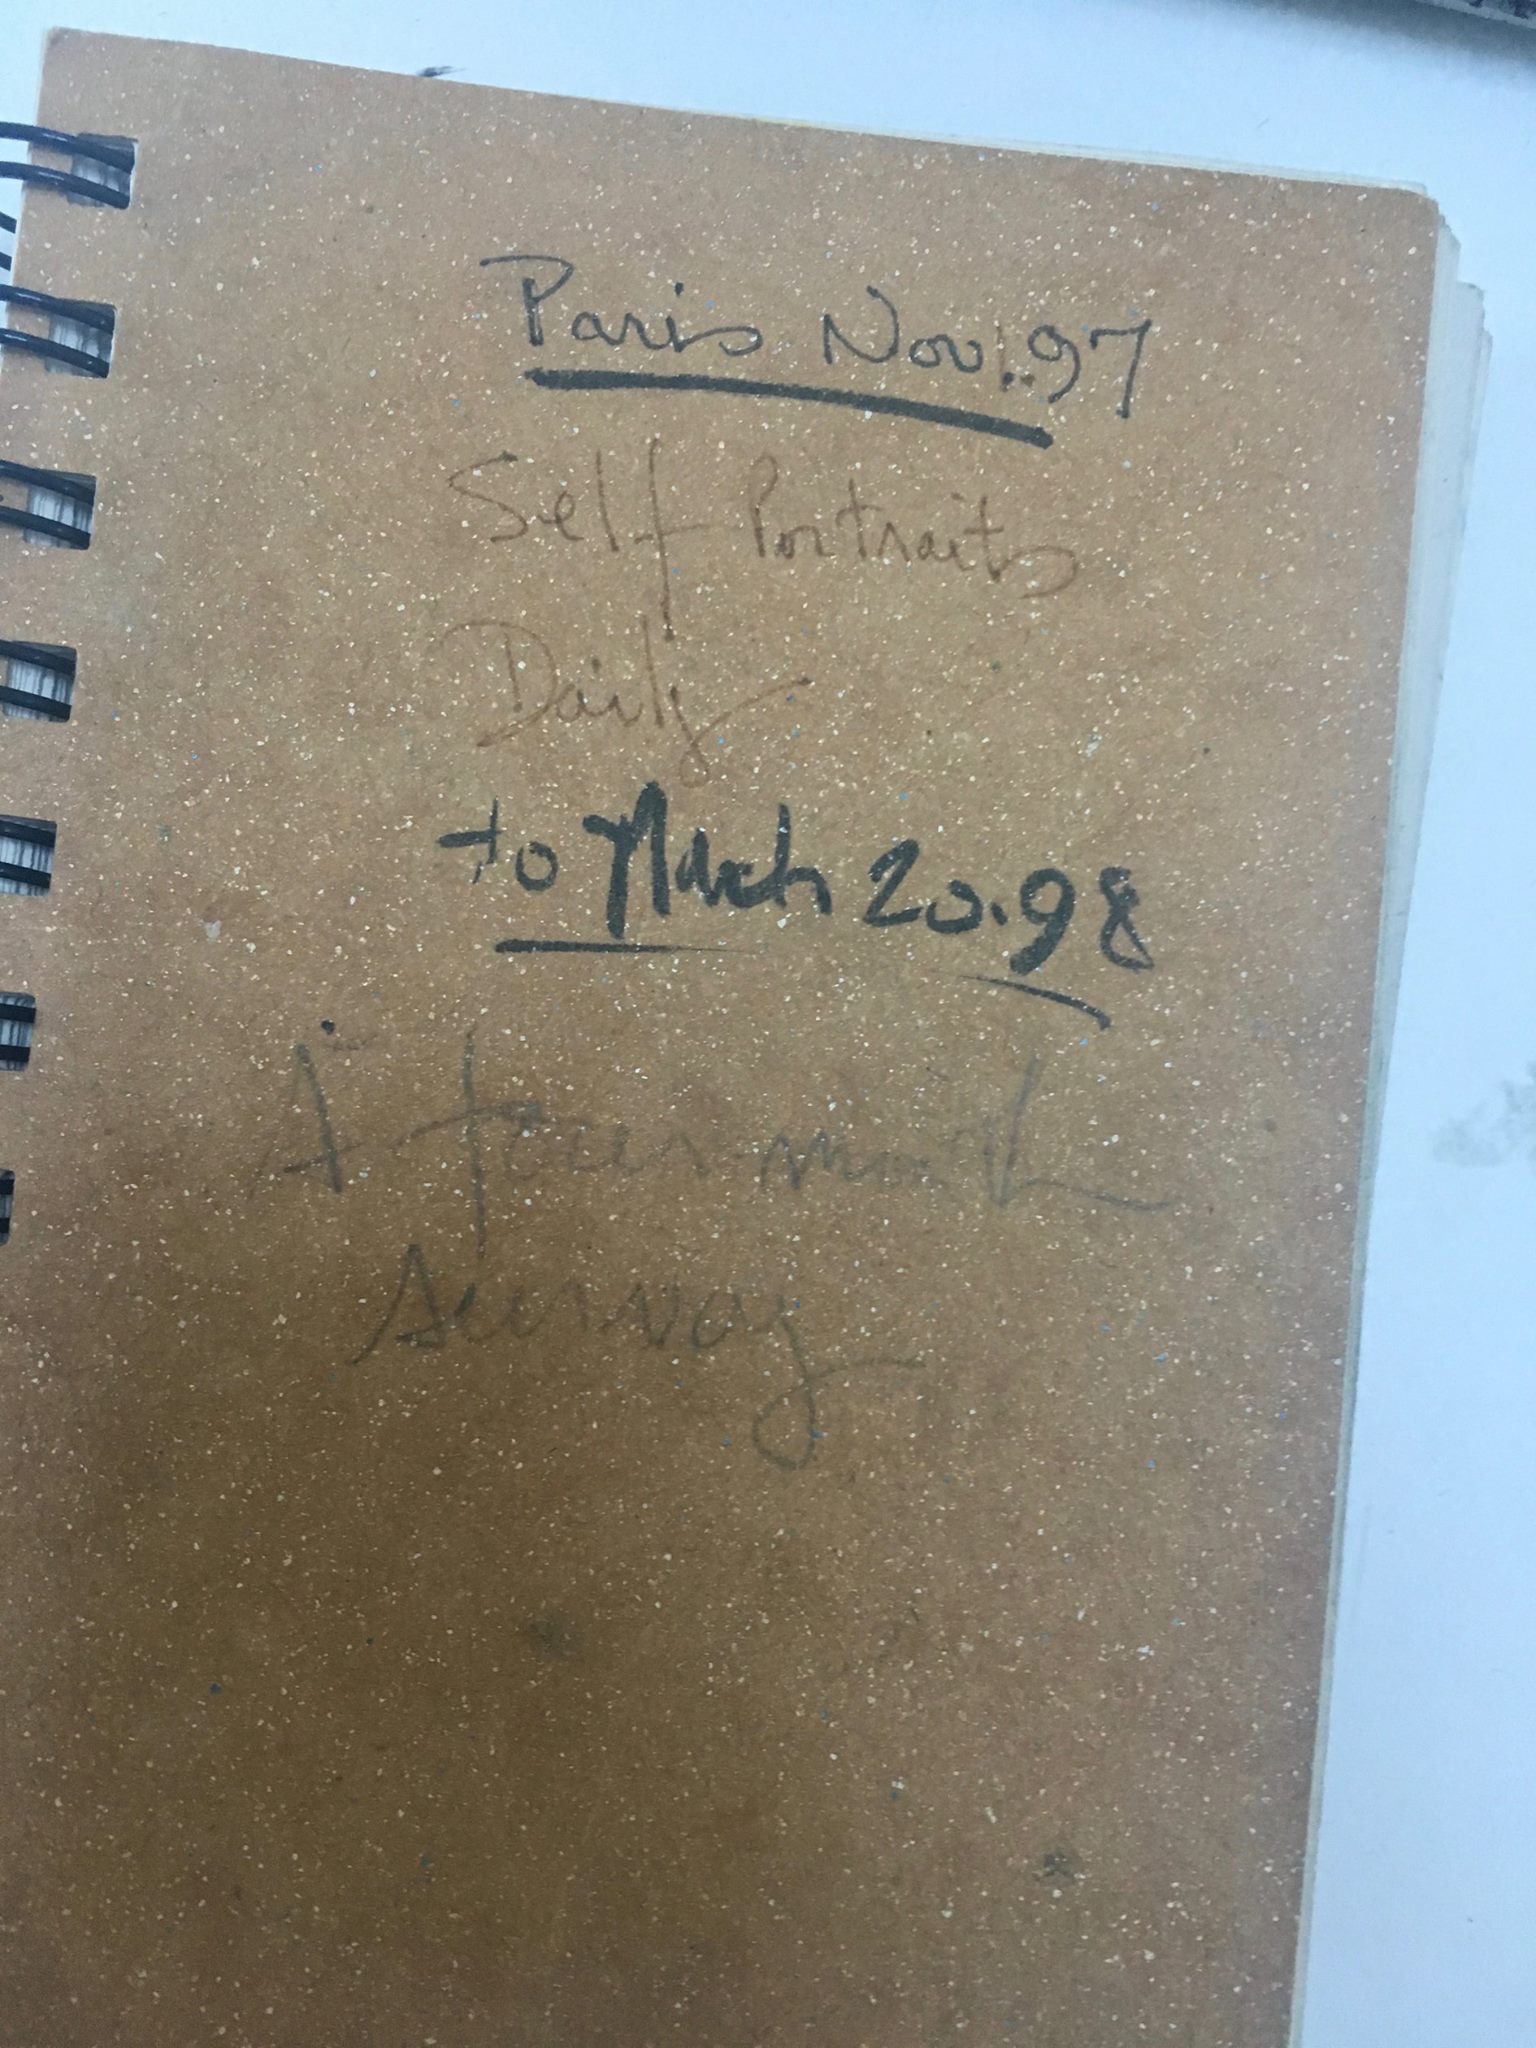 Paris Nov. 97
Self Portraits
Daily
to March 20.98
A four month